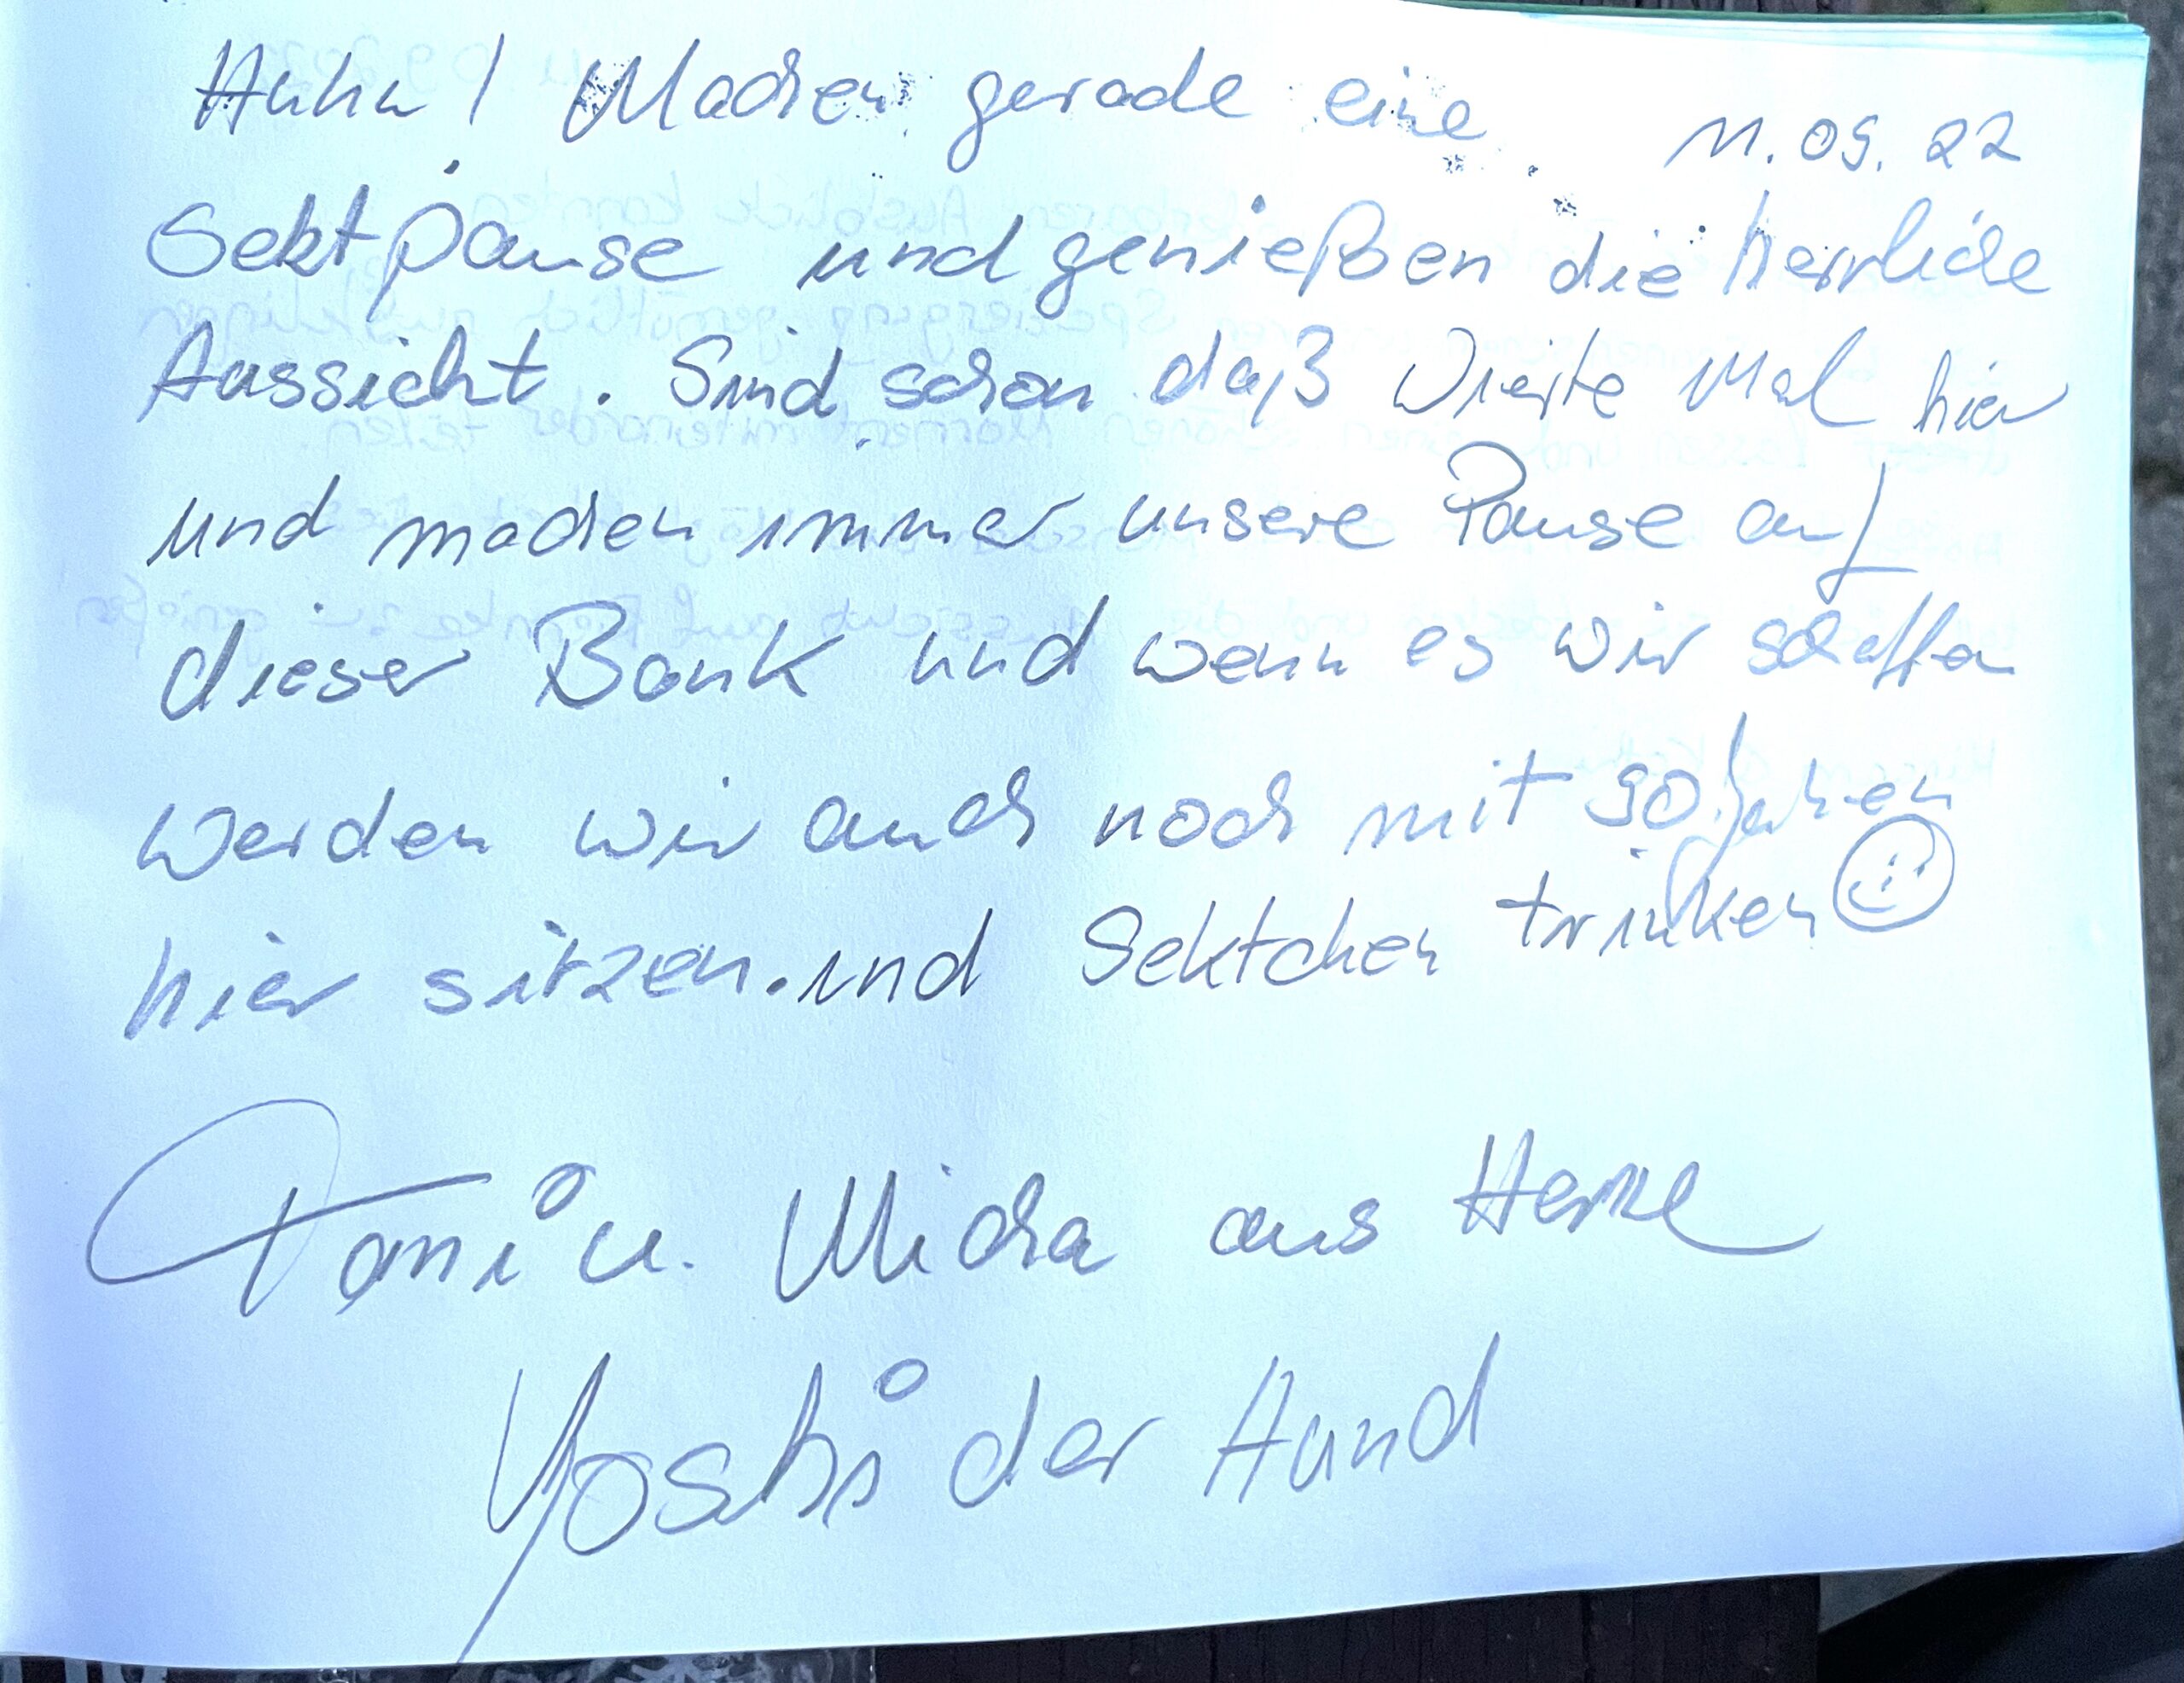 Huhu! Machen gerade eine
11.09.22
Sektpause und genießen die herrliche
Aussicht. Sind schon daß vierte Mal hier
und machen immer unsere Pause auf
dieser Bank und wenn es wir schaffen
werden wir auch noch mit 90. Jahren
hier sitzen.und Sektchen trinken
Tani u. Micha aus Herne
Yoshi der Hund